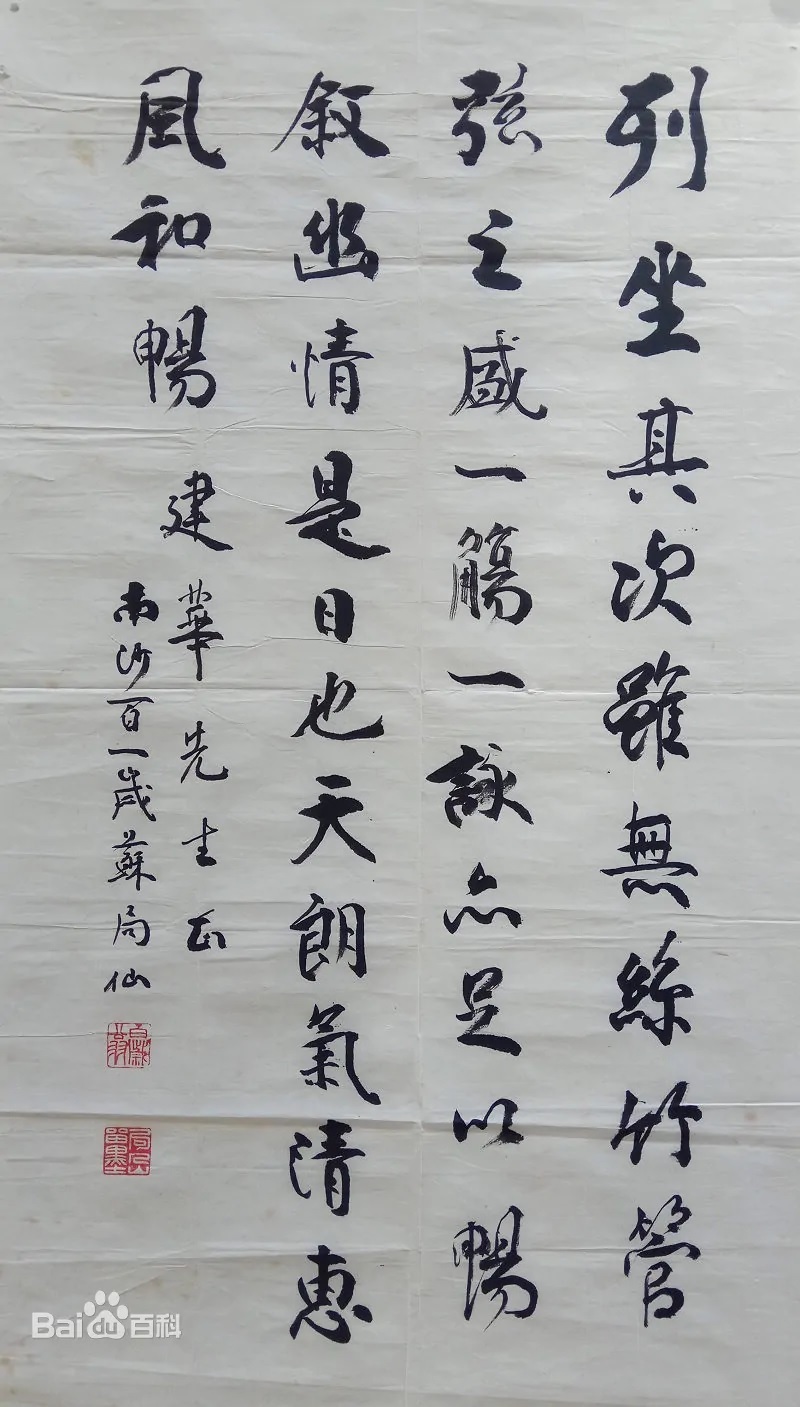 列坐其次雖無絲竹管
弦之盛一觴一詠亦足以暢
敘幽情是日也天朗氣清惠
風和暢
建華先生正
南沙百一歲蘇局仙
Bai百科